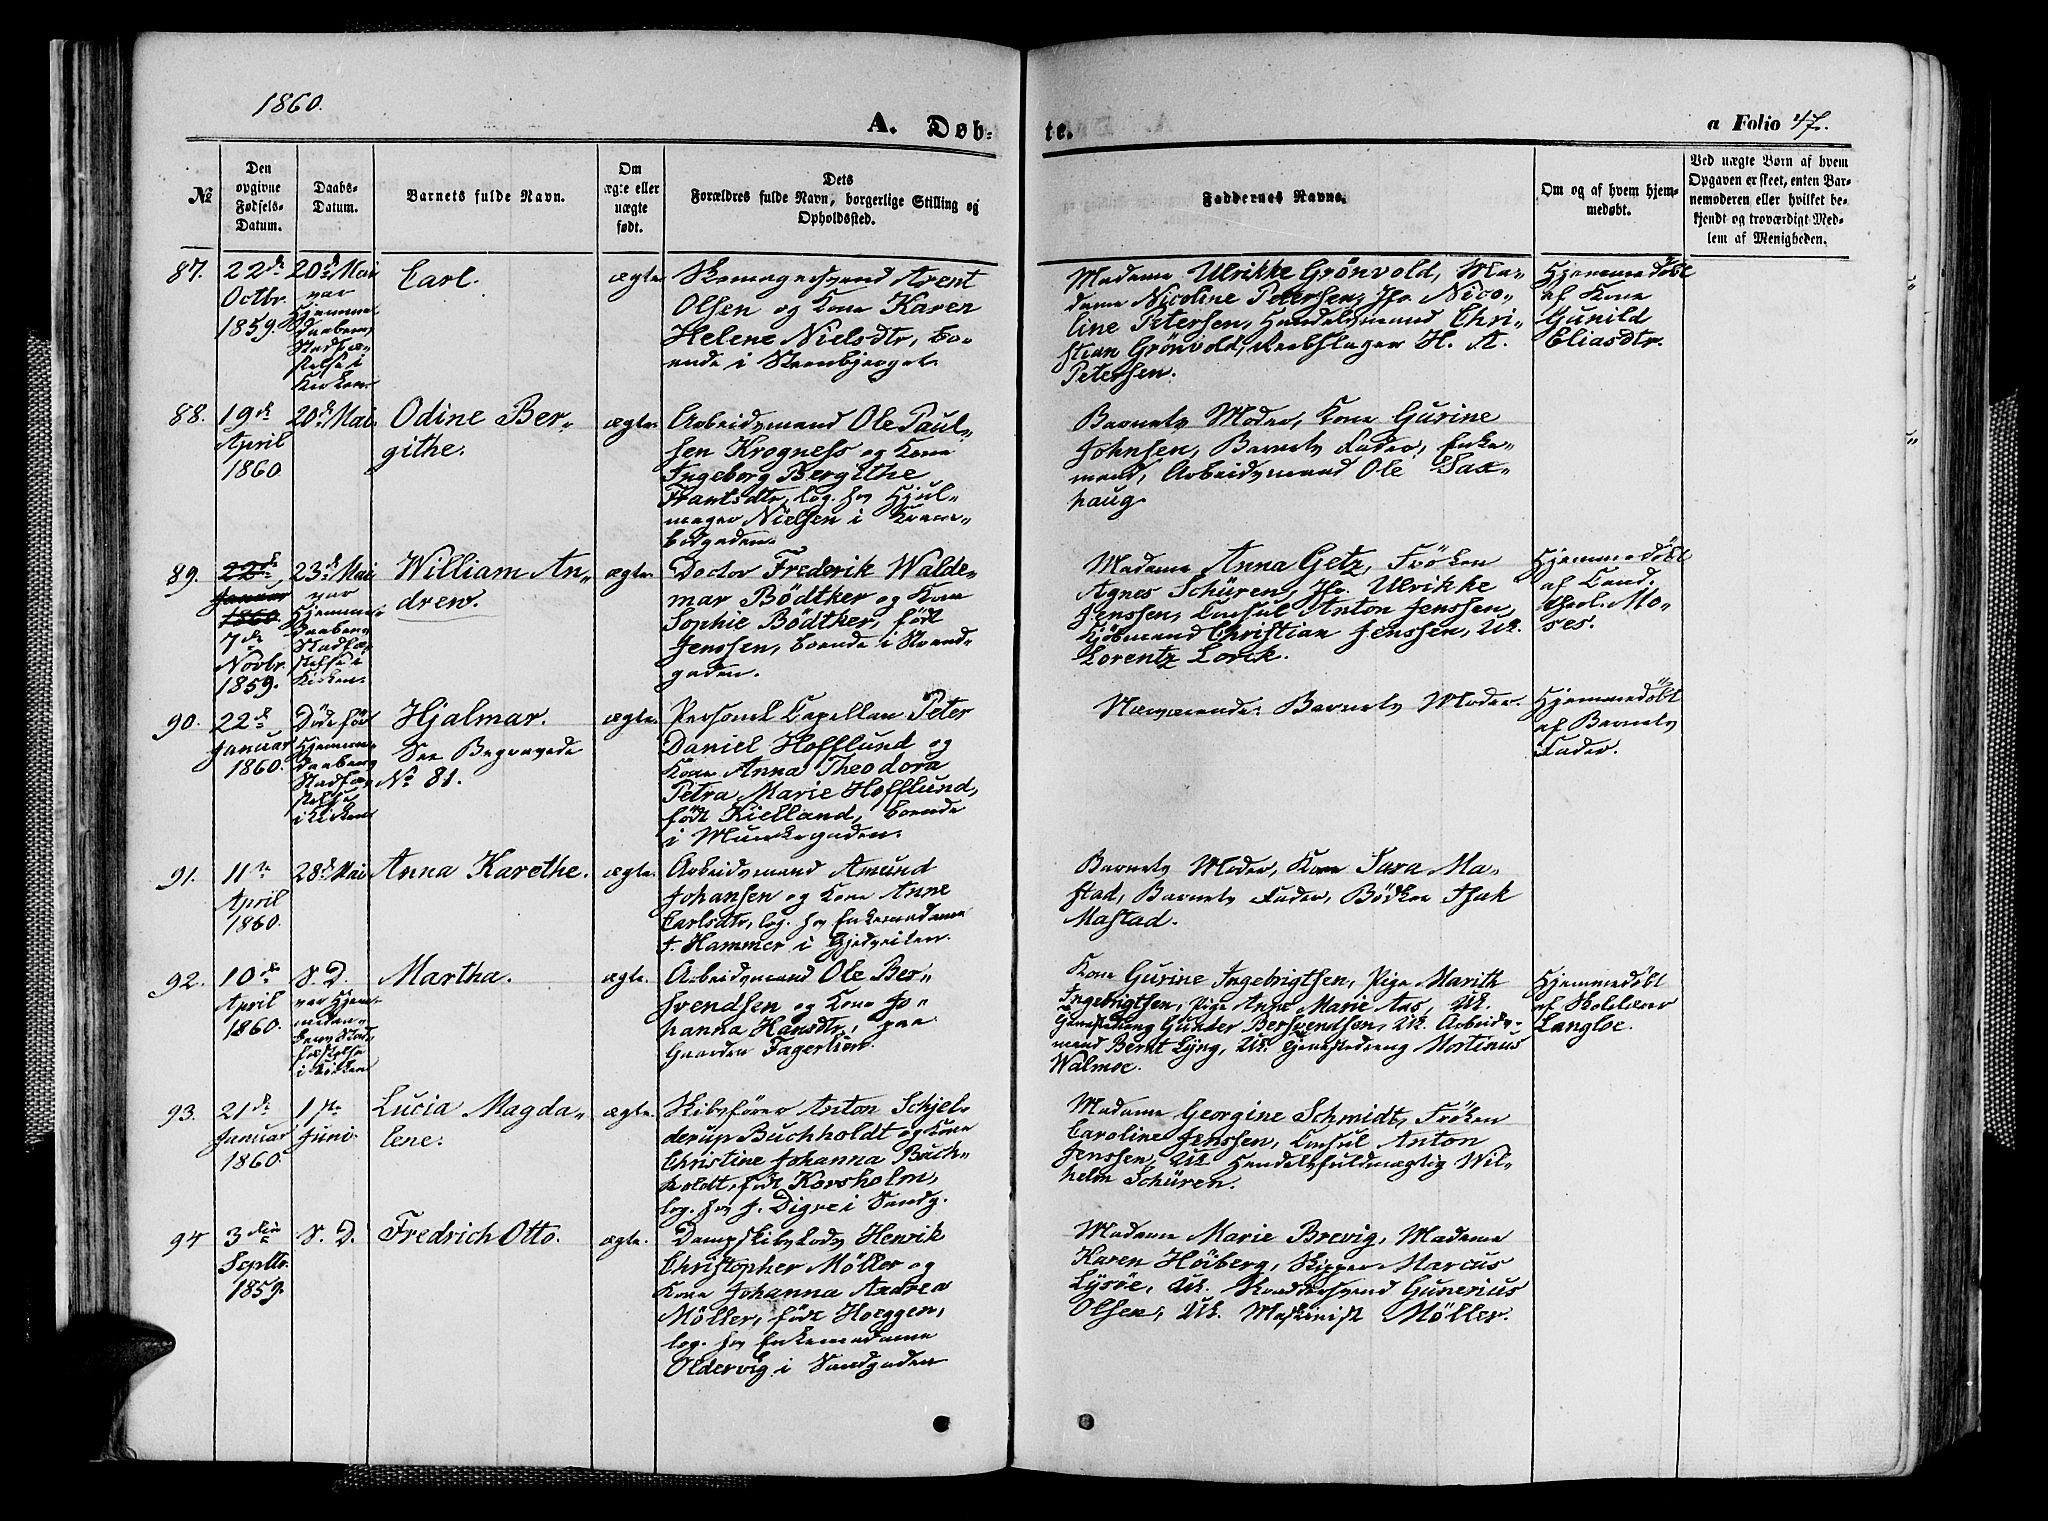 1860.
A. Døb-
te.
a Folio 47.
№
Den
opgivne
Fødsels-
Datum.
Daabs-
Datum.
Barnets fulde Navn.
Om
ægte eller
uægte
født.
Dets
Forældres fulde Navn, borgerlige Stilling og
Opholdssted.
Faddernes Navne.
Om og af hvem hjem-
medøbt.
Ved uægte Børn af hvem
Opgaven er skeet, enten Bar-
nemoderen eller hvilket be-
kjendt og troværdigt Med-
lem af Menigheden.
87.
22de
Octbr.
1859.
20de Mai
var
Hjemme
daabens
Stadfæ-
stelse i
Kirken.
Carl.
ægte
Skomagersvend Arent
Olsen og Kone Karen
Helene Nielsdtr, bo-
ende i Steenbjerget.
Madame Ulrikke Grönvold, Ma-
dame Nicoline Petersen, Jfr. Nico-
line Petersen, Handelsmand Chri-
stian Grönvold, Reebslager H. A.
Petersen.
Hjemmedøbt
af Kone
Gunild
Eliasdtr.
88.
19de
April
1860
20de Mai.
Odine Ber-
githe.
ægte.
Arbeidsmand Ole Paul-
sen Krogness og Kone
Ingeborg Bergithe
Hantsdtr, log. hos Hjul-
mager Nielsen i
Barnets Moder, Kone Gurine
Johnsen, Barnets Fader, Enke-
mand, Arbeidsmand Ole Sax-
haug.
89.
22de
Januar
1860
7de
Novbr.
1859.
23de Mai
var
Hjemme-
daabens
Stadfæ-
stelse i
Kirken.
William An-
drew.
ægte.
Doctor Frederik Walde-
mar Bödtker og Kone
Sophie Bödtker, født
Jenssen, boende i Strand-
gaden.
Madame Anna Getz, Fröken
Agnes Schüren, Jfr. Ulrikke
Jenssen, Consul Anton Jenssen,
Kjøbmand Christian Jenssen, Uk.
Lorentz Lorck.
Hjemmedøbt
af Cand.
theol. Mo-
ses.
90.
22de
Januar
1860.
Døde før
Hjemme-
daabens
Stadfæ-
stelse
i Kirken
Hjalmar.
See Begravede
No 81.
ægte.
Personel Capellan Peter
Daniel Hofflund og
Kone Anna Theodora
Petra Marie Hofflund,
født Kielland, boende
i Munkegaden.
Nærværende: Barnets Moder.
Hjemmedøbt
af Barnets
Fader.
91.
11te
April
1860.
28de Mai
Anna Karethe.
ægte.
Arbeidsmand Amund
Johansen og Kone Anne
Carlsdtr, log. hos Enkemadame
F. Hammer i Gjedveiten.
Barnets Moder, Kone Sara Ma-
stad, Barnets Fader, Bödker Isak
Mastad.
92.
10de
April
1860.
S. D.
var Hjem-
medaa-
bens Stad-
fæstelse
i Kirken
Martha.
ægte.
Arbeidsmand Ole Ber-
svendsen og Kone Jo-
hanna Hansdtr, paa
Gaarden Fagerlien.
Kone Gurine Ingebrigtsen, Pige Marith
Ingebrigtsen, Pige Anne Marie Aas, Uk.
Gunder Bersvendsen, Uk. Arbeids-
mand Bernt Lyng, Uk. Mortinus
Walmoe.
Hjemmedøbt
af Skolelærer
Langloe.
93.
21de
Januar
1860.
1ste
Juni.
Lucia Magda-
lene.
ægte.
Skibsfører Anton Schjel-
derup Buchholdt og Kone
Christine Johanna Buch-
holdt, født Korsholm,
log. hos J. Digre i Sandg.
Madame Georgine Schmidt, Fröken
Caroline Jenssen, Consul Anton
Jenssen, Uk. Handelsfuldmægtig Wil-
helm Schüren.
94
3die
Septbr.
1859.
S. D.
Fredrich Otto.
ægte.
Dampskibslods Henrik
Christopher Möller og
Kone Johanna Andrea
Möller, født Hoeggen,
log. hos Enkemadame
Oldervig i Sandgaden
Madame Marie Brevig, Madame
Karen Höiberg, Skipper Marcus
Lysöe, Uk. Skræddersvend Gunerius
Olsen, Uk. Maskinist Möller.